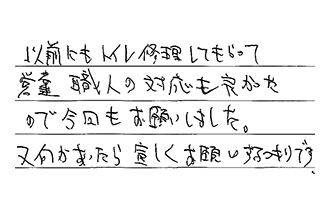 以前にもトイレ修理してもらって
営業 職人の対応も良かた
ので今回もお願いしました。
又何かあったら宜しくお願いするつもりです